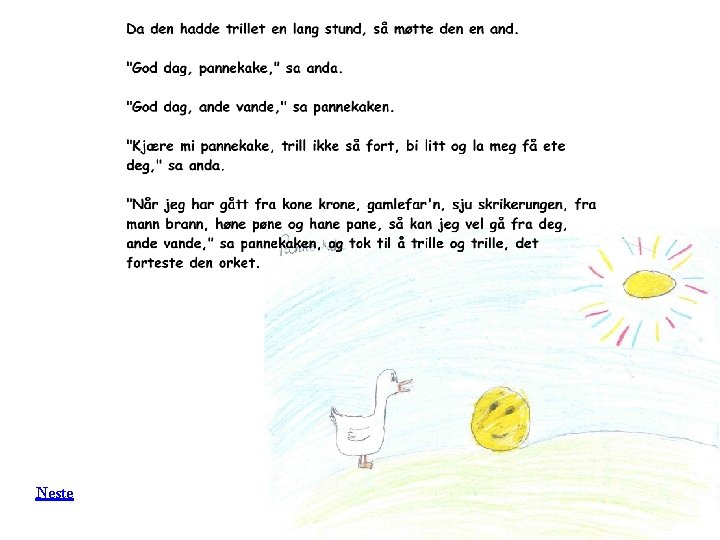 Da den hadde trillet en lang stund, så møtte den en and.
"God dag, pannekake," sa anda.
"God dag, ande vande," sa pannekaken.
"Kjære mi pannekake, trill ikke så fort, bi litt og la meg få ete
deg," sa anda.
"Når jeg har gått fra kone krone, gamlefar'n, sju skrikerungen, fra
mann brann, høne pøne og hane pane, så kan jeg vel gå fra deg,
ande vande," sa pannekaken, og tok til å trille og trille, det
forteste den orket.
Neste